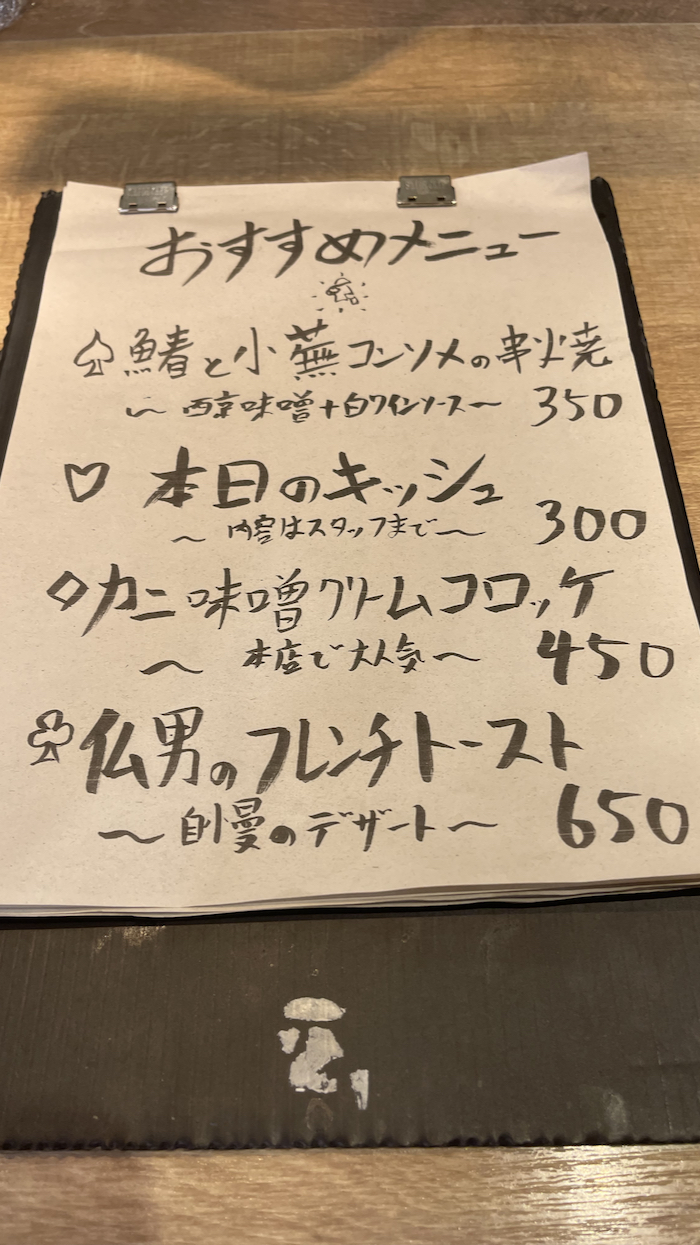 おすすめメニュー
鰆と小蕪コンソメの串火焼
〜 西京味噌+白ワインソース〜 350
本日のキッシュ
〜 内容はスタッフまで〜 300
カニ味噌クリームコロッケ
〜 本店で大人気〜 450
仏男のフレンチトースト
〜自慢のデザート〜 650